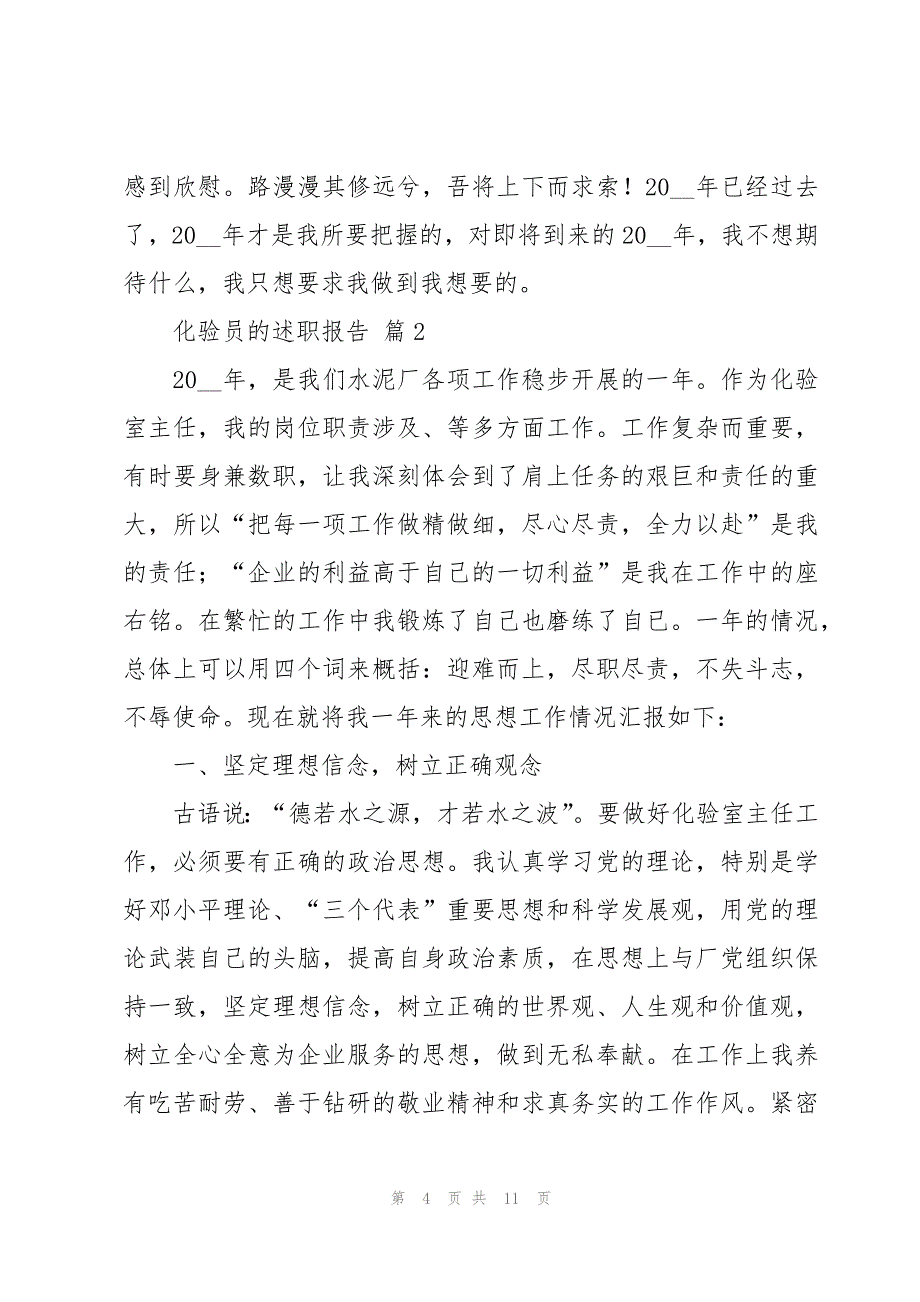 感到欣慰。路漫漫其修远兮，吾将上下而求索！20__年已经过去
了，20__年才是我所要把握的，对即将到来的20__年，我不想期
待什么，我只想要求我做到我想要的。
化验员的述职报告 篇2
20__年，是我们水泥厂各项工作稳步开展的一年。作为化验
室主任，我的岗位职责涉及、等多方面工作。工作复杂而重要，
有时要身兼数职，让我深刻体会到了肩上任务的艰巨和责任的重
大，所以“把每一项工作做精做细，尽心尽责，全力以赴”是我
的责任；“企业的利益高于自己的一切利益”是我在工作中的座
右铭。在繁忙的工作中我锻炼了自己也磨练了自已。一年的情况，
总体上可以用四个词来概括：迎难而上，尽职尽责，不失斗志，
不辱使命。现在就将我一年来的思想工作情况汇报如下：
一、坚定理想信念，树立正确观念
古语说：“德若水之源，才若水之波”。要做好化验室主任工
作，必须要有正确的政治思想。我认真学习党的理论，特别是学
好邓小平理论、“三个代表”重要思想和科学发展观，用党的理
论武装自己的头脑，提高自身政治素质，在思想上与厂党组织保
持一致，坚定理想信念，树立正确的世界观、人生观和价值观，
树立全心全意为企业服务的思想，做到无私奉献。在工作上我养
有吃苦耐劳、善于钻研的敬业精神和求真务实的工作作风。紧密
第 4 页 共 11 页